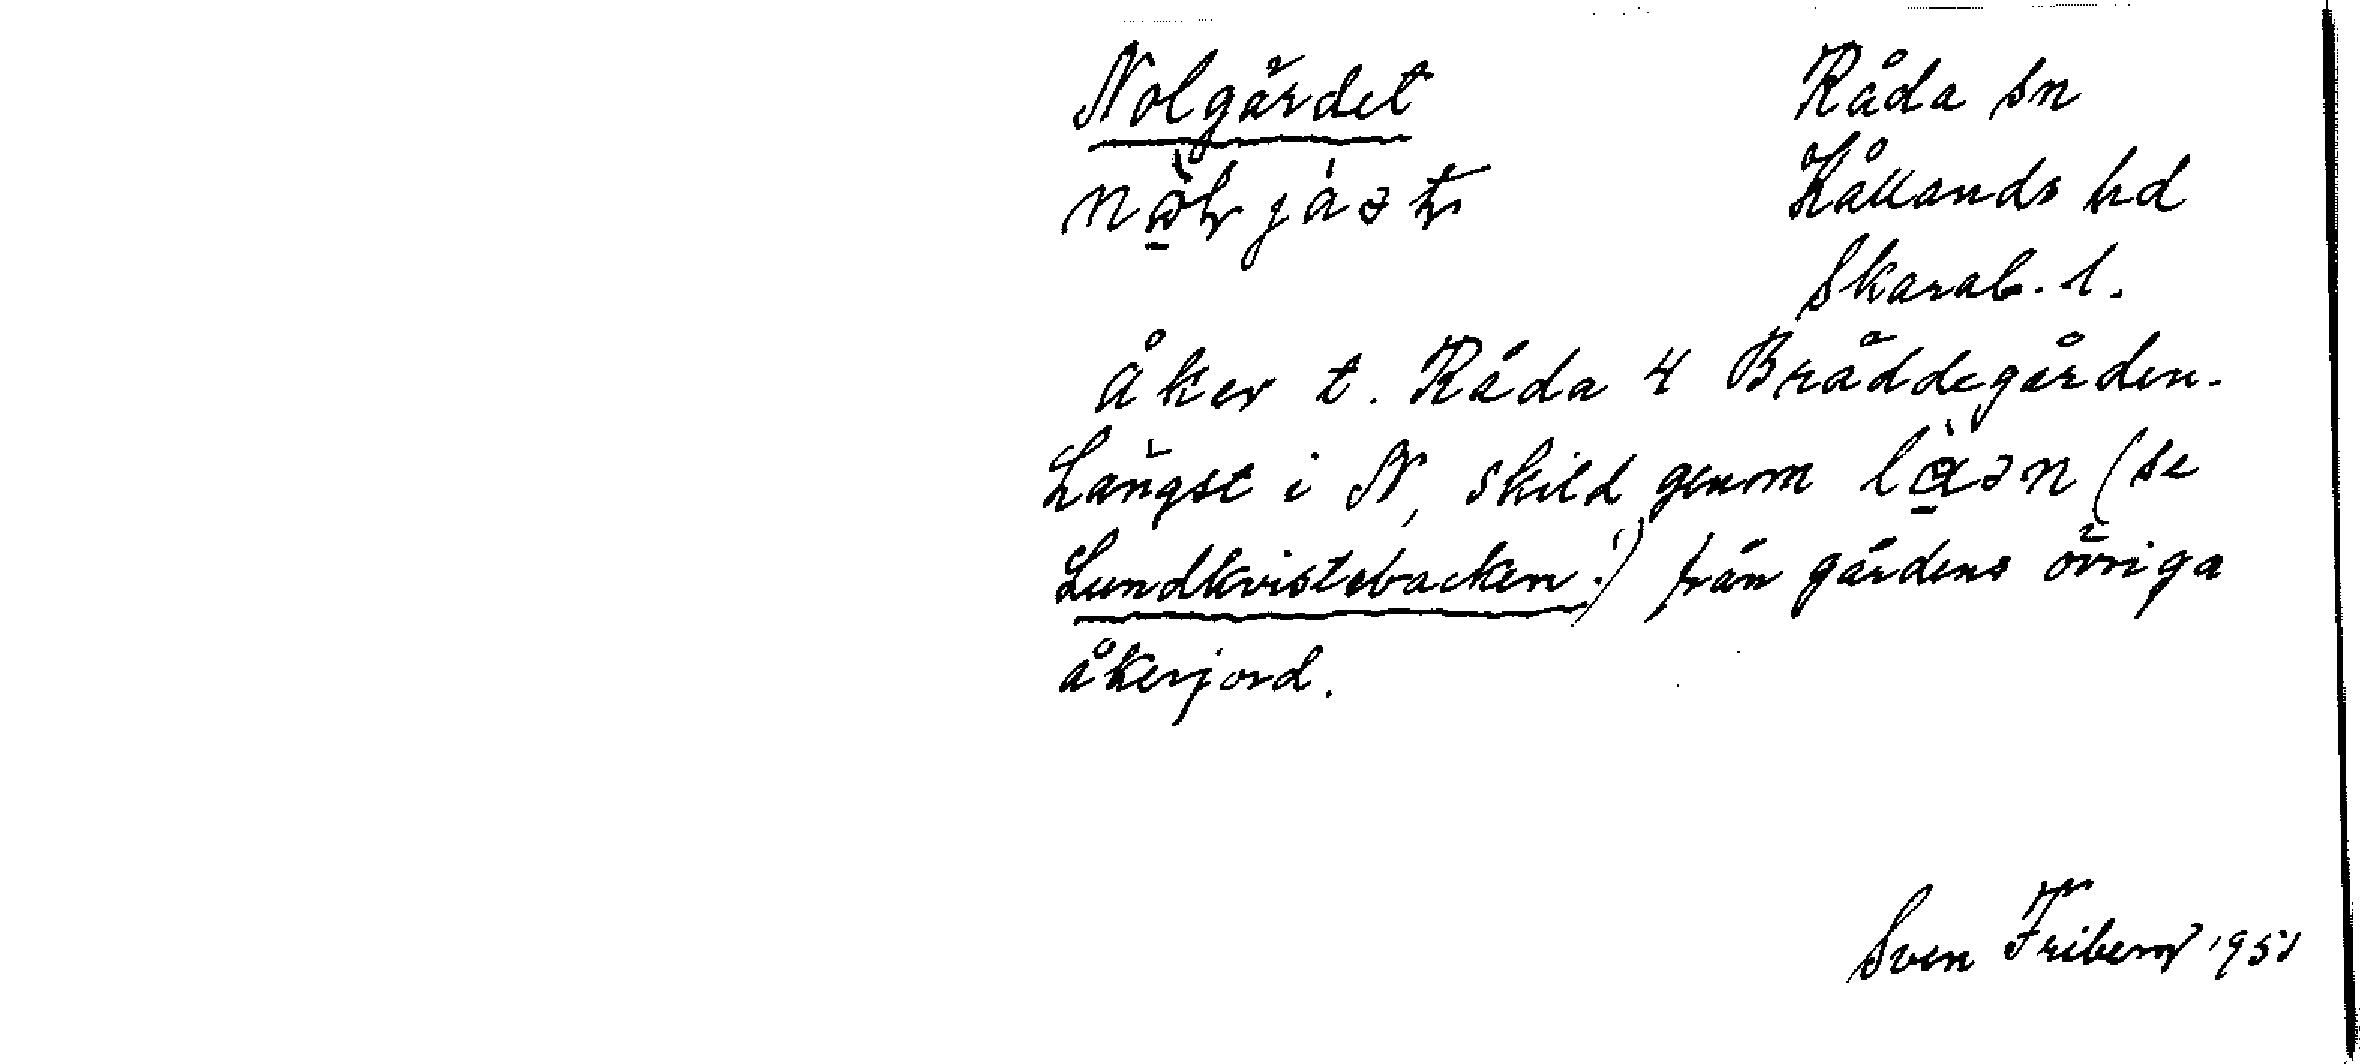 Nolgärdet
Råda sn
Kållands hd
Skarab. l.
Åker t. Råda 4 Bräddegården.
Längst i N, skild genom (se
Lundkvistebacken!) från gårdens övriga
åkerjord.
Sven Friberg 1951